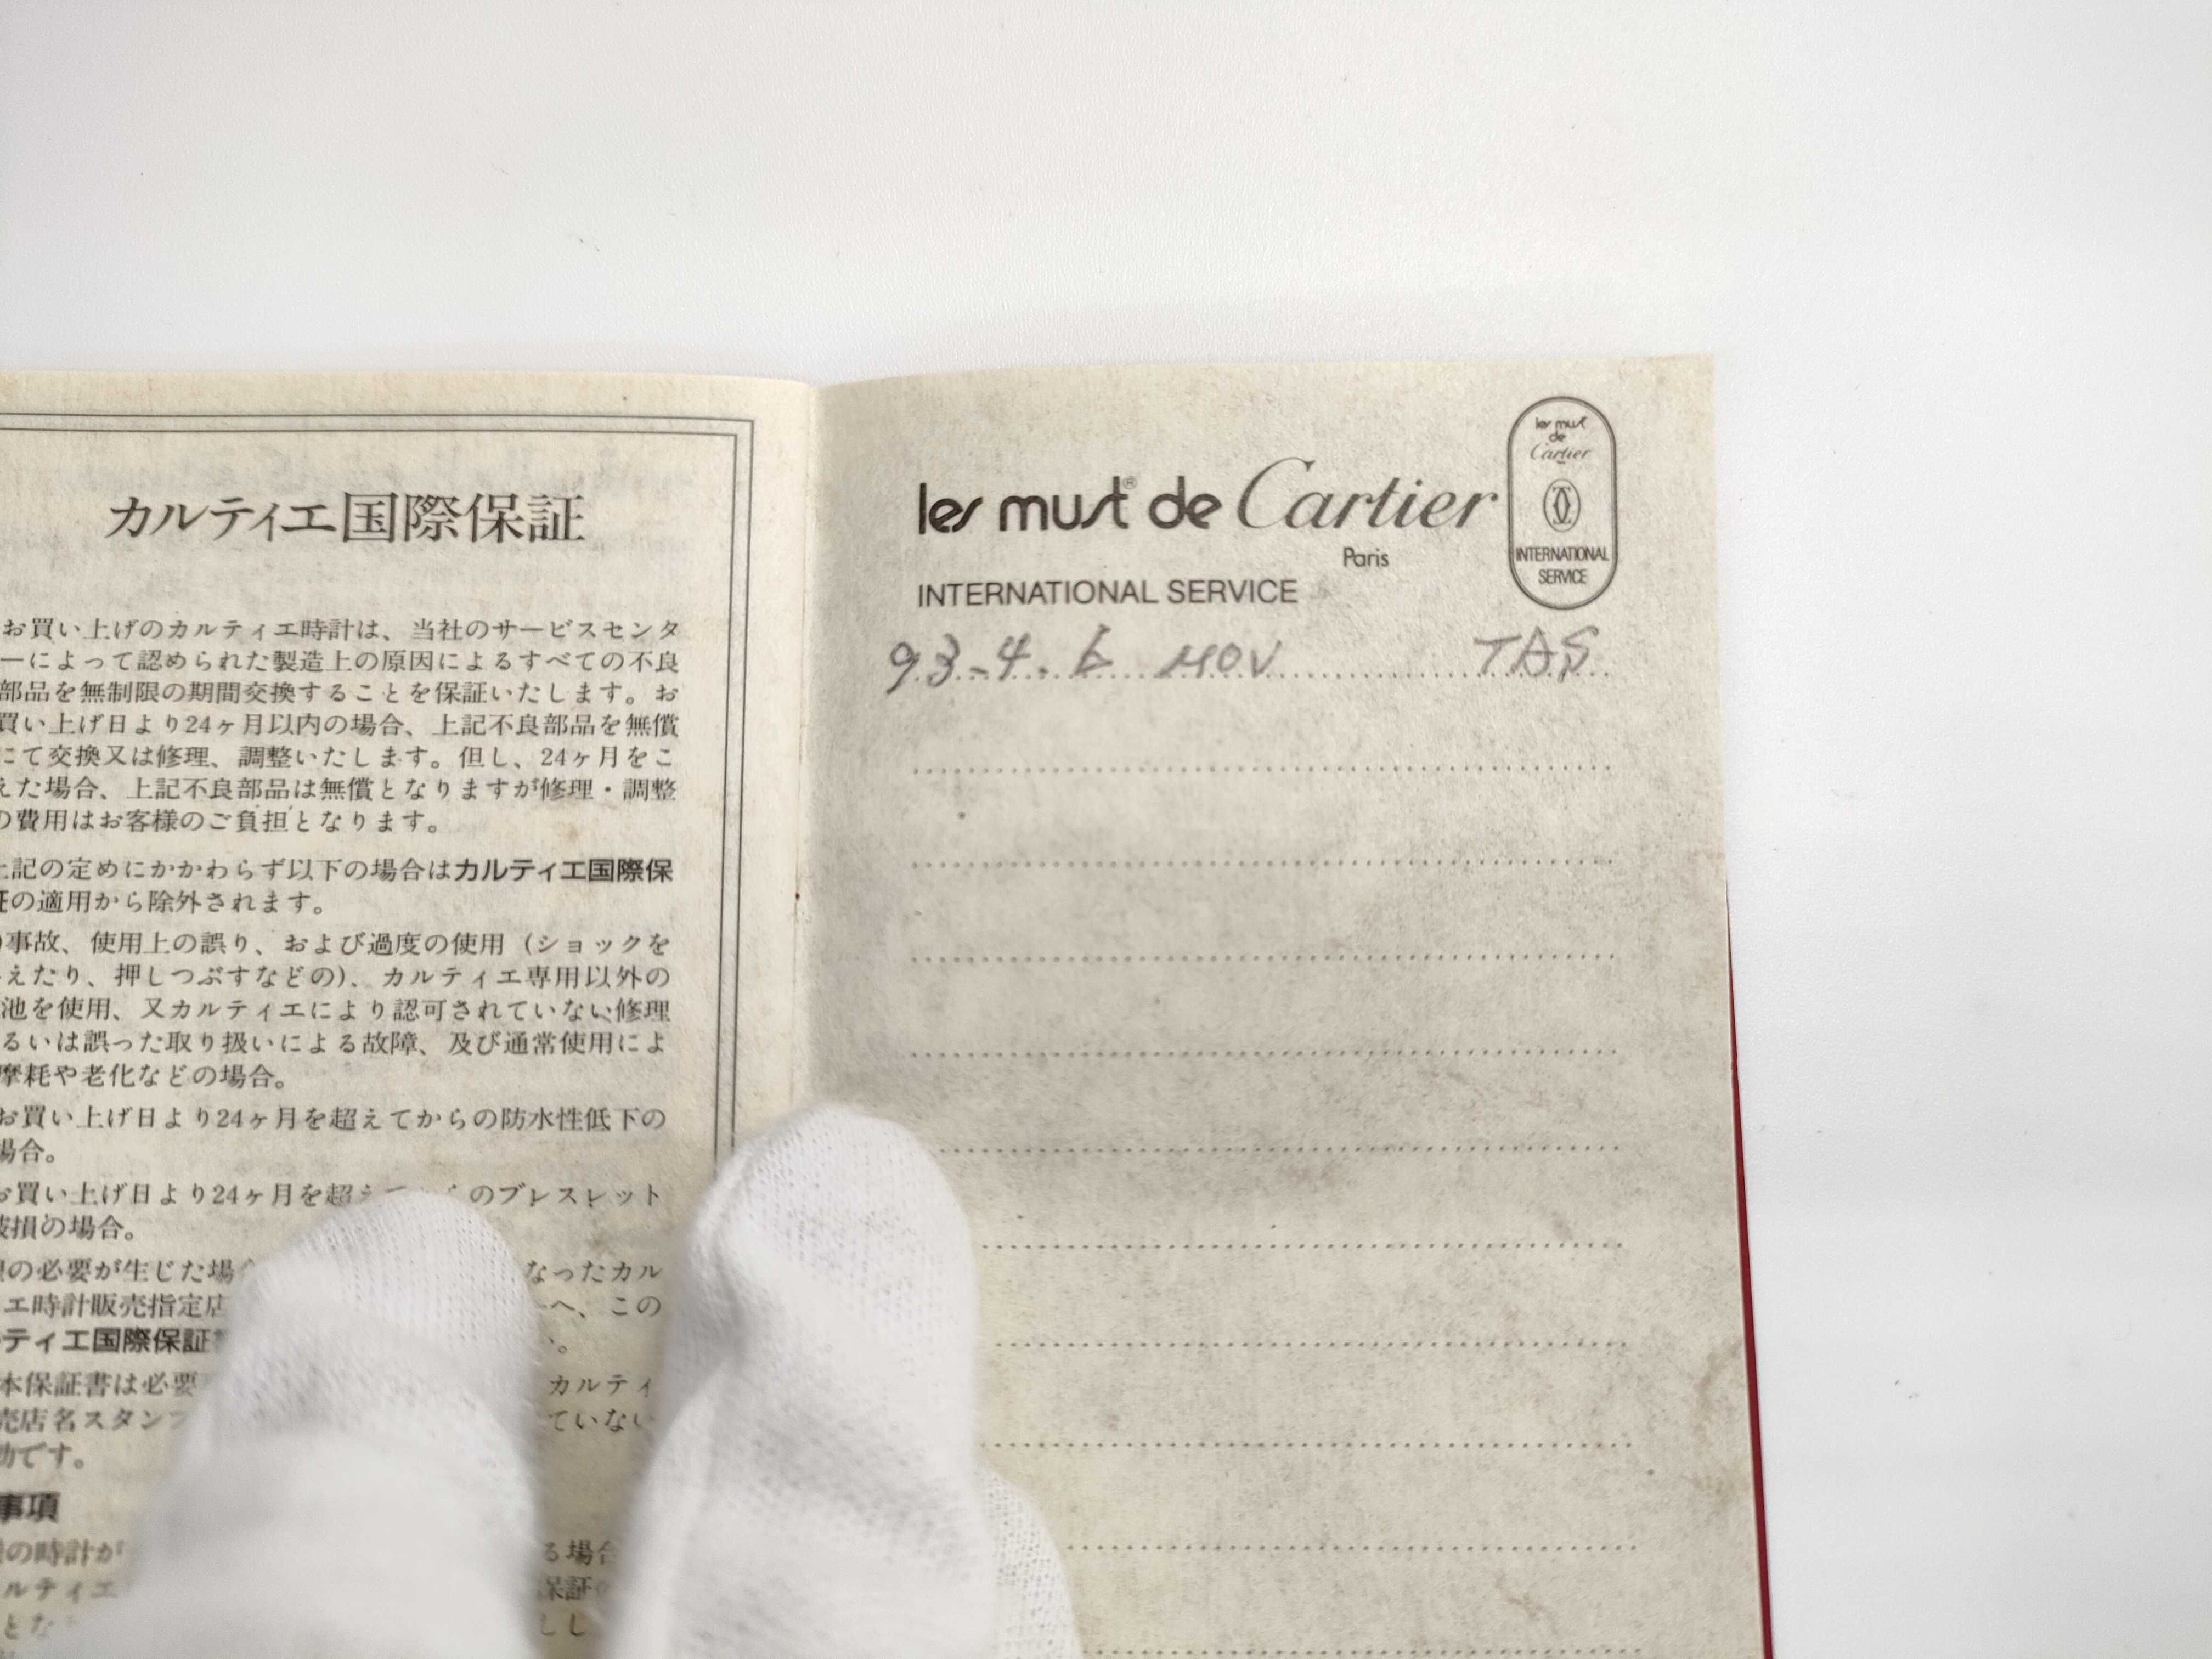 カルティエ国際保証
お買い上げのカルティエ時計は、当社のサービスセンタ
ーによって認められた製造上の原因によるすべての不良
部品を無制限の期間交換することを保証いたします。お
買い上げ日より24ヶ月以内の場合、上記不良部品を無償
にて交換又は修理、調整いたします。但し、24ヶ月をこ
えた場合、上記不良部品は無償となりますが修理・調整
の費用はお客様のご負担となります。
上記の定めにかかわらず以下の場合はカルティエ国際保
証の適用から除外されます。
事故、使用上の誤り、および過度の使用（ショックを
えたり、押しつぶすなどの）、カルティエ専用以外の
池を使用、又カルティエにより認可されていない修理
るいは誤った取り扱いによる故障、及び通常使用によ
摩耗や老化などの場合。
お買い上げ日より24ヶ月を超えてからの防水性低下の
場合。
お買い上げ日より24ヶ月を超え のブレスレット
破損の場合。
の必要が生じた場 なったカル
エ時計販売指定店 へ、この
ティエ国際保証 。
本保証書は必要 カルティ
売店名スタンプ ていない
効です。
事項
の時計が る場合
ルティエ 保証
とな
les must® de Cartier
Paris
INTERNATIONAL SERVICE
les must
de
Cartier
INTERNATIONAL
SERVICE
93-4-6 MOV TAS